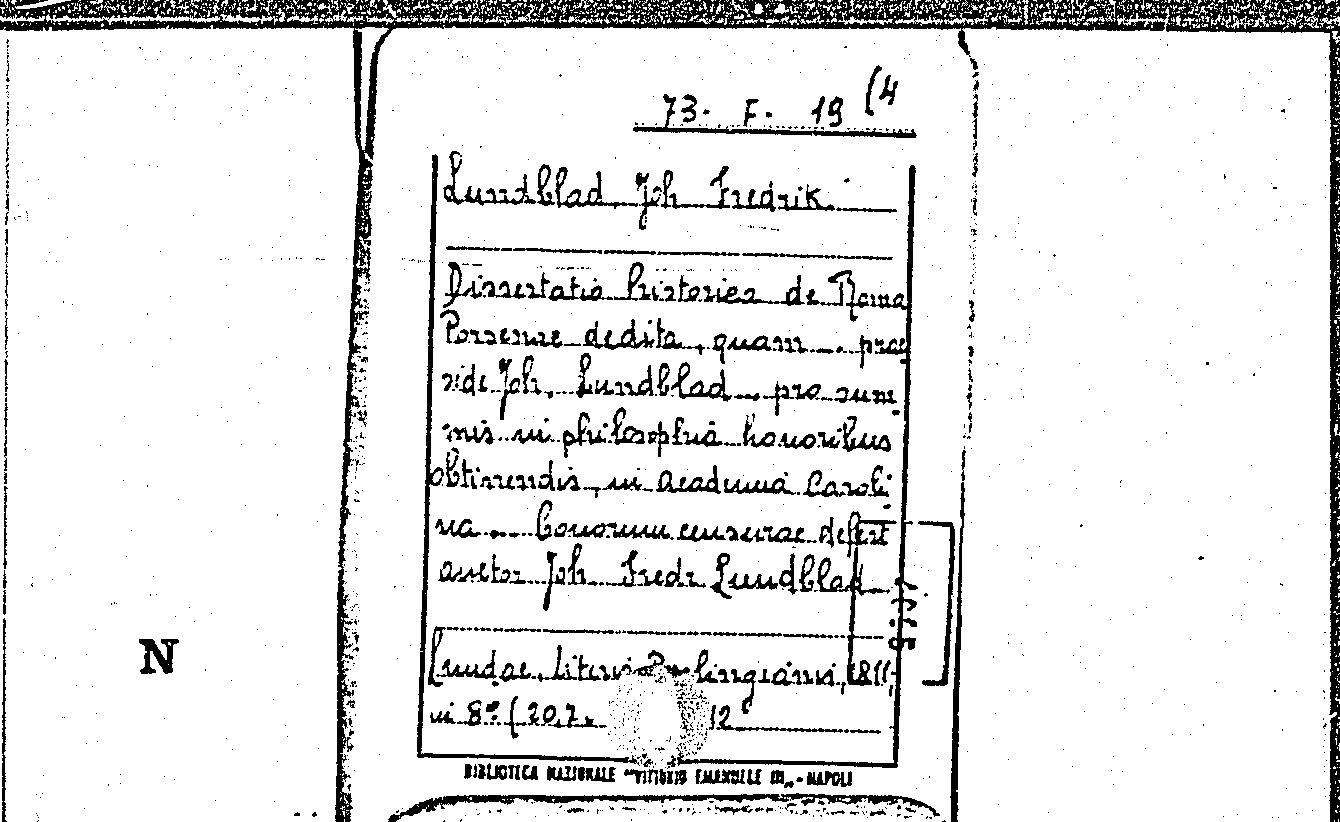 73. F. 19 (4
Lundblad Joh Fredrik.
Dissertatio historica de Roma
Porsenae dedita, quam ... prae
side Joh. Lundblad ... pro sum-
mis in philosophia honoribus
obtinendis, in academia Caroli-
na ... bonorum censurae defert
auctor Joh Fredr Lundblad
N
Lundae, Literis 1811,
in 8° (20,7 x 12
BIBLIOTECA NAZIONALE "VITTORIO EMANUELE III" - NAPOLI